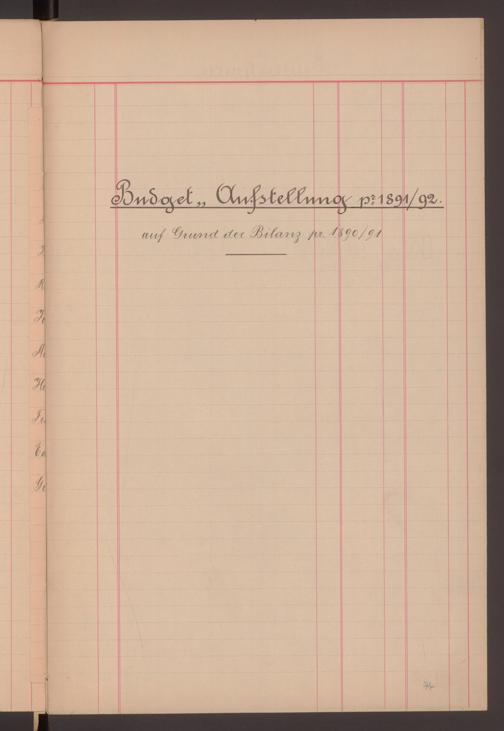 Budget„ Aufstellung pº 1891/92.
auf Grund der Bilanz pr. 1890/91